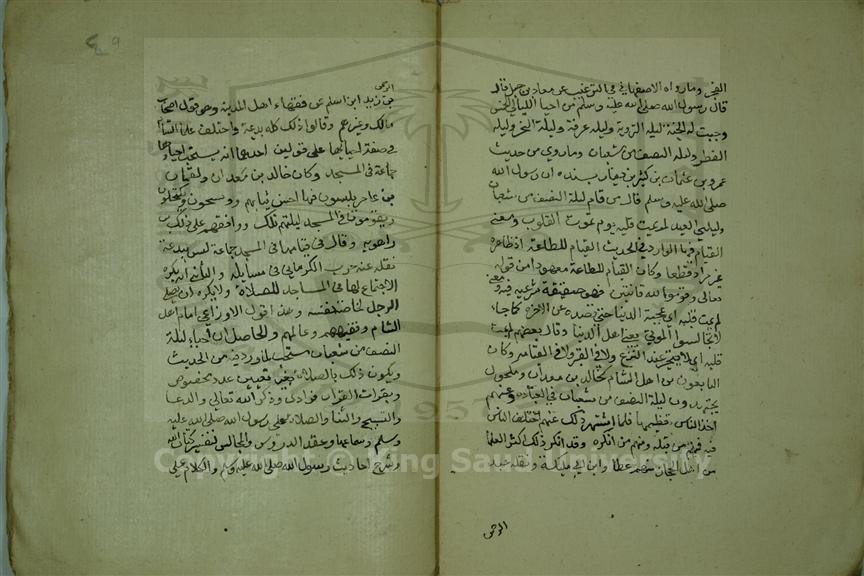 الفجر وما رواه الاصفهاني في الترغيب عن معاذ بن جبل قال
قال رسول الله صلى الله عليه وسلم من احيا الليالي الخمس
وجبت له الجنة ليلة التروية وليلة عرفة وليلة النحر وليلة
الفطر وليلة النصف من شعبان وما روي من حديث
عمرو بن عثمان بن كثير بن دينار بسنده ان رسول الله
صلى الله عليه وسلم قال من قام ليلة النصف من شعبان
وليلتي العيد لم يمت قلبه يوم تموت القلوب ومعنى
القيام فيها الوارد في الحديث القيام للطاعة اذ ظاهره
غير مراد قطعا وكان القيام للطاعة معهود من قوله
تعالى وقوموا لله قانتين فهو حقيقة شرعية فيه ومعنى
لم يمت قلبه اي بمحبة الدنيا حتى تصده عن الاخرة كما جا
لا تجالسوا الموتى يعني اهل الدنيا وقال بعضهم لم يمت
قلبه اي لا يتحير عند النزع ولا في القبر ولا في القيامة وكان
التابعون من اهل الشام كخالد بن معدان ومكحول
يجتهدون ليلة النصف من شعبان في العبادة وعنهم
اخذ الناس تعظيمها فلما اشتهر ذلك عنهم اختلف الناس
فيه فمنهم من قبله ومنهم من انكره وقد انكر ذلك اكثر العلما
من اهل الحجاز منهم عطا وابن ابي مليكة ونقله عبد
الرحمن
الرحمن
بن زيد ابن اسلم عن فقهاء اهل المدينة وهو قول اصحاب
مالك وغيرهم وقالوا ذلك كله بدعة واختلف علما الشام
في صفة احيائها على قولين احدهما انه يستحب احياؤها
جماعة في المسجد وكان خالد بن معدان ولقمان
بن عامر يلبسون فيها احسن ثيابهم ويكتحلون
ويقومون في المسجد ليلتهم تلك ووافقهم على ذلك بن
راهويه وقال في قيامها في المسجد جماعة ليس ببدعة
نقله عنه حرب الكرماني في مسائله والثاني انه يكره
الاجتماع لها في المساجد للصلاة ولا يكره ان يصلي
الرجل لخاصة نفسه وهذا قول الاوزاعي امام اهل
الشام وفقيههم وعالمهم والحاصل ان احياء ليلة
النصف من شعبان مستحب لما ورد فيه من الحديث
ويكون ذلك بالصلاة بغير تعيين عدد مخصوص
وبقراءت القران فرادى وذكر الله تعالى والدعا
والتسبيح والثنا والصلاة على رسول الله صلى الله عليه
وسلم وسماعها وعقد الدروس والمجالس لتفسير كتاب الله
وشرح احاديث رسول الله صلى الله عليه وسلم والكلام على
Copyright © King Saud University
1957